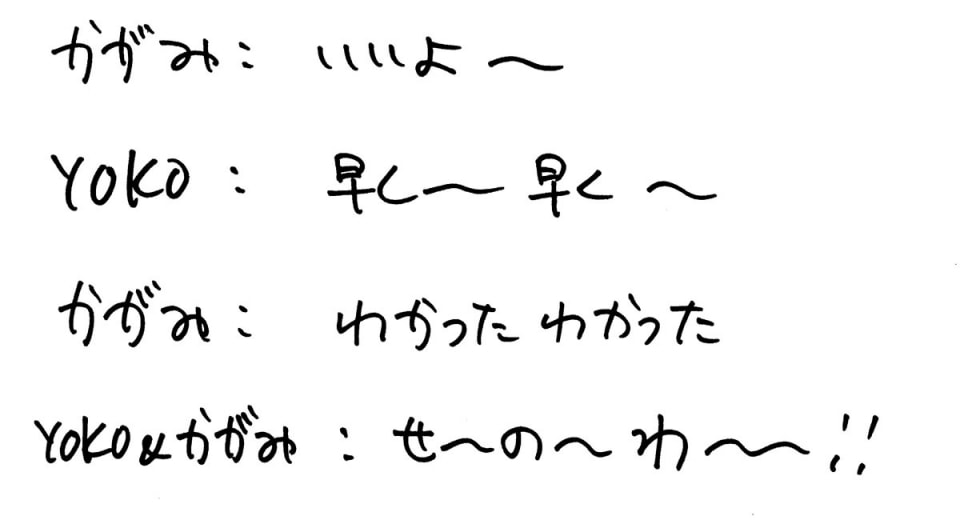 かがみ： いいよ〜
YOKO： 早く〜 早く〜
かがみ： わかった わかった
YOKO&かがみ： せ〜の〜 わ〜〜!!